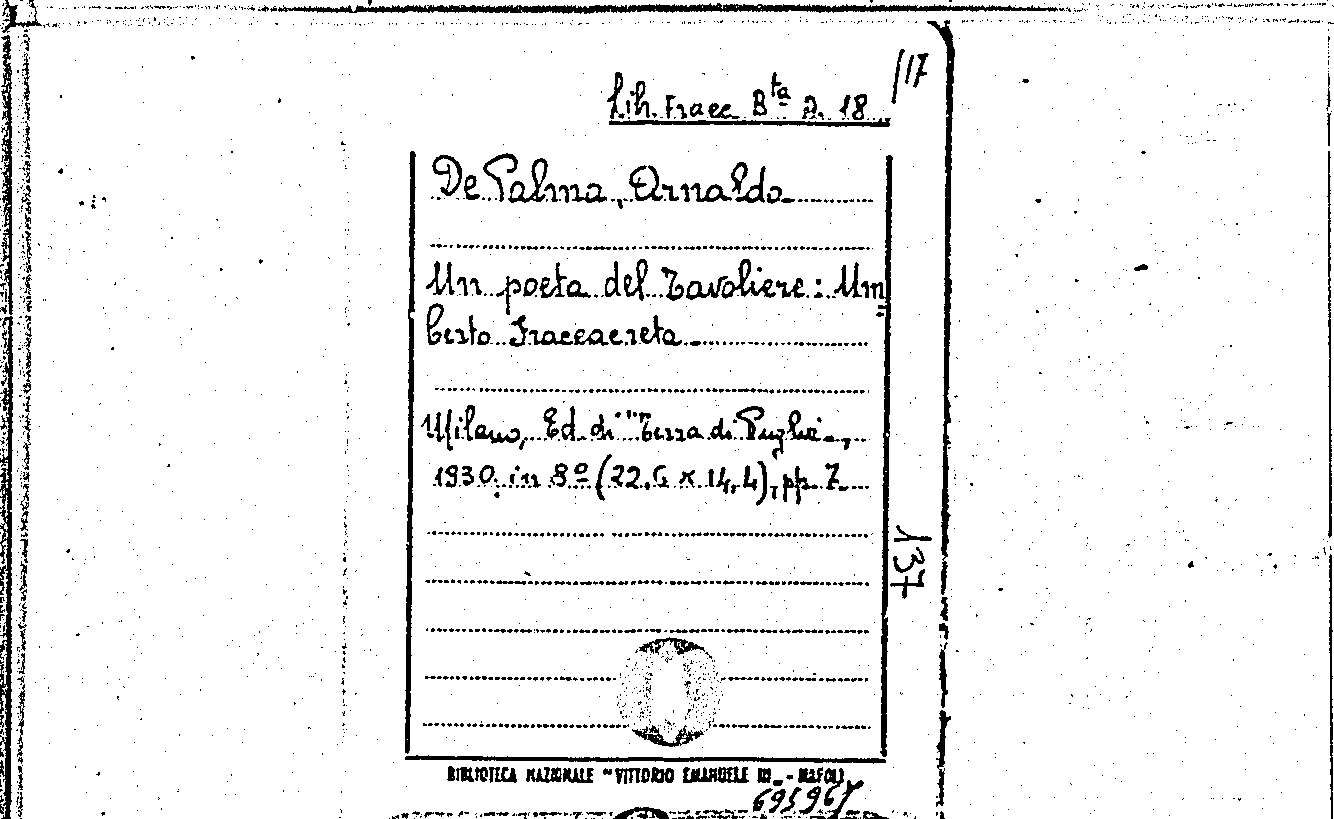 /17
Lib. Fracc. Bta D. 18
De Palma, Arnaldo
Un poeta del Tavoliere: Um
berto Fraccacreta
Milano, Ed. di "Terra di Puglia",
1930, in 8º (22,6 x 14,4), pp. 7
137
BIBLIOTECA NAZIONALE "VITTORIO EMANUELE III" - NAPOLI